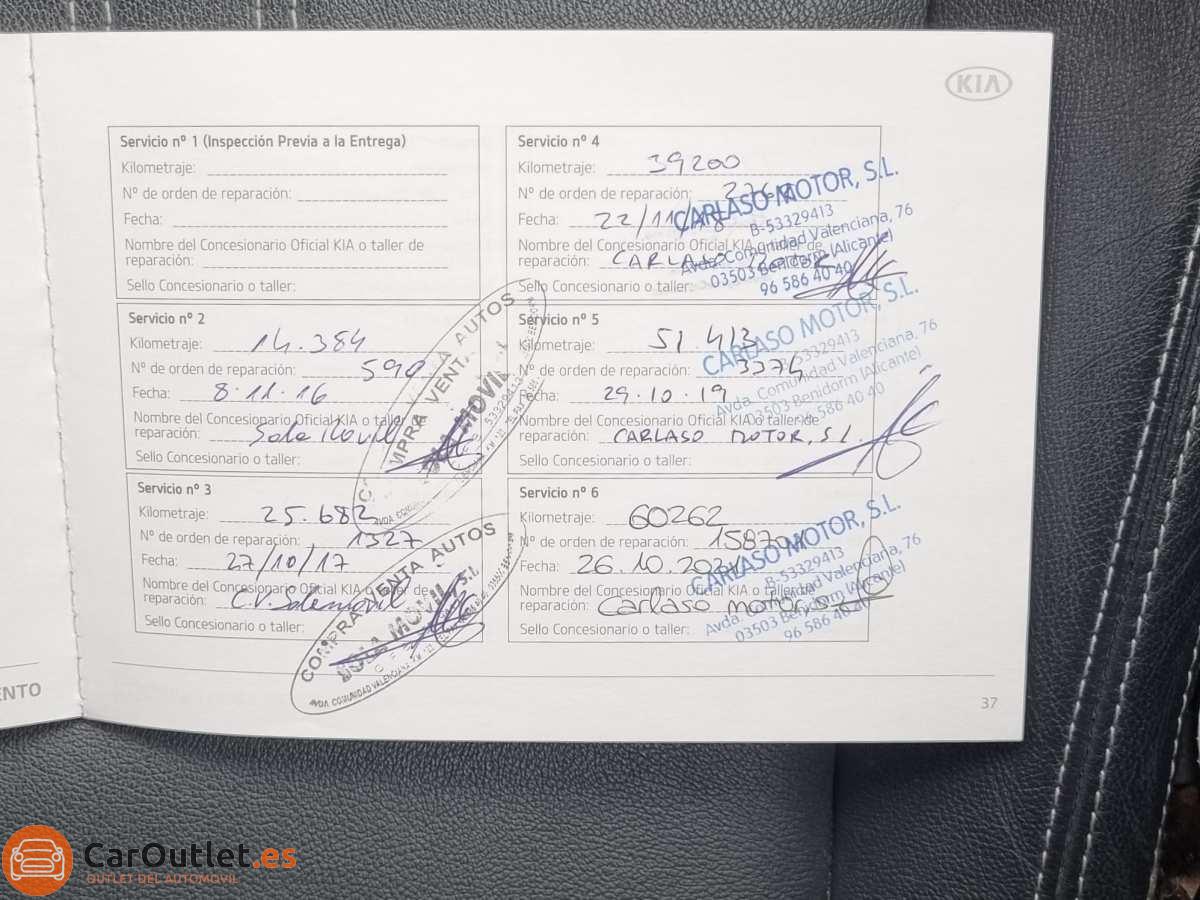 KIA
Servicio nº 1 (Inspección Previa a la Entrega)
Kilometraje:
Nº de orden de reparación:
Fecha:
Nombre del Concesionario Oficial KIA o taller de
reparación:
Sello Concesionario o taller:
Servicio nº 2
Kilometraje: 14.384
Nº de orden de reparación: 590
Fecha: 8.11.16
Nombre del Concesionario Oficial KIA o taller de
reparación: Sola Movil
Sello Concesionario o taller:
COMPRA VENTA AUTOS
SOLA MOVIL
Servicio nº 3
Kilometraje: 25.682
Nº de orden de reparación: 1327
Fecha: 27/10/17
Nombre del Concesionario Oficial KIA o taller de
reparación: C.V. Solamovil
Sello Concesionario o taller:
COMPRA VENTA AUTOS
SOLA MOVIL, S.L.
AVDA. COMUNIDAD VALENCIANA
Servicio nº 4
Kilometraje: 39200
Nº de orden de reparación:
Fecha: 22/11/18
Nombre del Concesionario Oficial KIA o taller de
reparación: CARLASO MOTOR
Sello Concesionario o taller:
CARLASO MOTOR, S.L.
B-53329413
Avda. Comunidad Valenciana, 76
03503 Benidorm (Alicante)
96 586 40 40
Servicio nº 5
Kilometraje: 51.413
Nº de orden de reparación: 3376
Fecha: 29.10.19
Nombre del Concesionario Oficial KIA o taller de
reparación: CARLASO MOTOR, S.L.
Sello Concesionario o taller:
CARLASO MOTOR, S.L.
B-53329413
Avda. Comunidad Valenciana, 76
03503 Benidorm (Alicante)
96 586 40 40
Servicio nº 6
Kilometraje: 60262
Nº de orden de reparación: 15870
Fecha: 26.10.202
Nombre del Concesionario Oficial KIA o taller de
reparación: Carlaso motor, s.l.
Sello Concesionario o taller:
CARLASO MOTOR, S.L.
B-53329413
Avda. Comunidad Valenciana, 76
03503 Benidorm (Alicante)
96 586 40 40
ENTO
37
CarOutlet.es
OUTLET DEL AUTOMOVIL